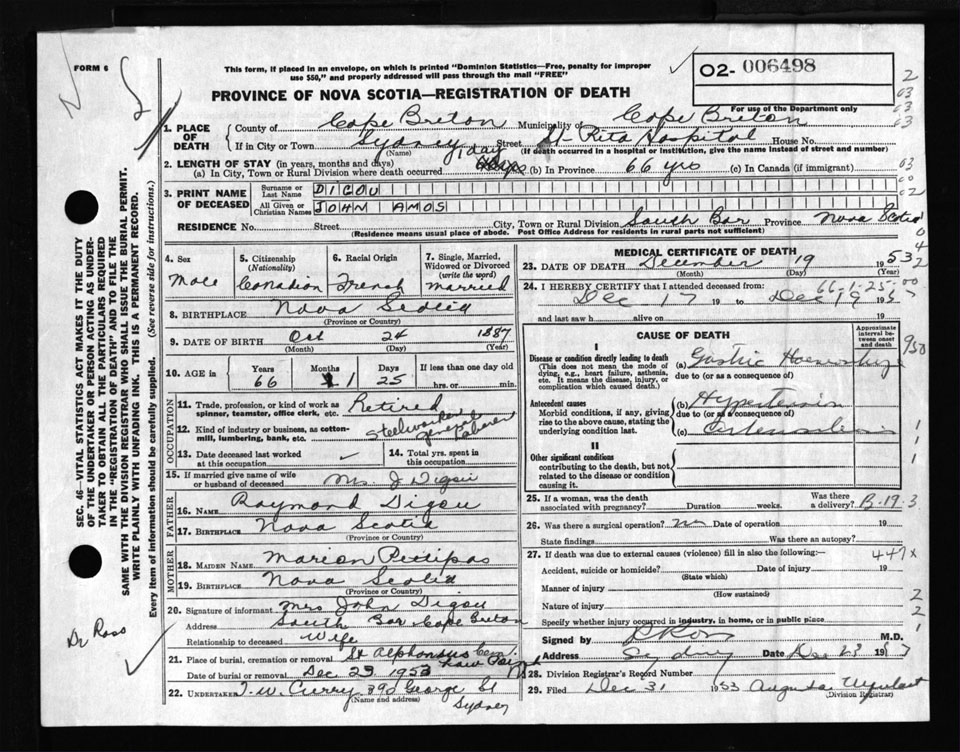 FORM 6
This form, if placed in an envelope, on which is printed "Dominion Statistics—Free, penalty for improper
use $50," and properly addressed will pass through the mail "FREE"
02- 006498
PROVINCE OF NOVA SCOTIA—REGISTRATION OF DEATH
For use of the Department only
1. PLACE OF DEATH
County of Cape Breton Municipality of Cape Breton
If in City or Town Sydney Street St Rita Hospital House No.
(Name) (If death occurred in a hospital or institution, give the name instead of street and number)
2. LENGTH OF STAY (in years, months and days)
(a) In City, Town or Rural Division where death occurred 1 day (b) In Province 66 yrs (c) In Canada (if immigrant)
3. PRINT NAME OF DECEASED
Surname or Last Name DIGOU
All Given or Christian Names JOHN AMOS
RESIDENCE No. Street City, Town or Rural Division South Bar Province Nova Scotia
(Residence means usual place of abode. Post Office Address for residents in rural parts not sufficient)
SEC. 46—VITAL STATISTICS ACT MAKES IT THE DUTY
OF THE UNDERTAKER OR PERSON ACTING AS UNDER-
TAKER TO OBTAIN ALL THE PARTICULARS REQUIRED
IN THE "REGISTRATION OF DEATH" AND TO FILE THE
SAME WITH THE DIVISION REGISTRAR WHO SHALL ISSUE THE BURIAL PERMIT.
WRITE PLAINLY WITH UNFADING INK. THIS IS A PERMANENT RECORD.
Every item of information should be carefully supplied. (See reverse side for instructions.)
Dr Ross
4. Sex
Male
5. Citizenship (Nationality)
Canadian
6. Racial Origin
French
7. Single, Married, Widowed or Divorced (write the word)
married
8. BIRTHPLACE Nova Scotia
(Province or Country)
9. DATE OF BIRTH Oct 24 1887
(Month) (Day) (Year)
10. AGE in
Years Months Days If less than one day old
66 1 25 hrs. or min.
OCCUPATION
11. Trade, profession, or kind of work as
spinner, teamster, office clerk, etc. Retired
12. Kind of industry or business, as cotton-
mill, lumbering, bank, etc. Steelworker General Laborer
13. Date deceased last worked
at this occupation
14. Total yrs. spent in
this occupation
15. If married give name of wife
or husband of deceased Mrs J Digou
FATHER
16. NAME Raymond Digou
17. BIRTHPLACE Nova Scotia
(Province or Country)
MOTHER
18. MAIDEN NAME Marion Pettipas
19. BIRTHPLACE Nova Scotia
(Province or Country)
20. Signature of informant Mrs John Digou
Address South Bar Cape Breton
Relationship to deceased Wife
21. Place of burial, cremation or removal St Alphonsus Cem.
Date of burial or removal Dec 23 1953
22. UNDERTAKER T. W. Curry 390 George St
(Name and address) Sydney
MEDICAL CERTIFICATE OF DEATH
23. DATE OF DEATH December 19 1953
(Month) (Day) (Year)
66-1-25-00
24. I HEREBY CERTIFY that I attended deceased from:
Dec 17 19 to Dec 19 195
and last saw h alive on 19
CAUSE OF DEATH
Approximate interval between onset and death
I
Disease or condition directly leading to death
(This does not mean the mode of
dying, e.g., heart failure, asthenia,
etc. It means the disease, injury, or
complication which caused death.)
(a) Gastric
due to (or as a consequence of)
Antecedent causes
Morbid conditions, if any, giving
rise to the above cause, stating the
underlying condition last.
(b) Hypertension
due to (or as a consequence of)
(c)
II
Other significant conditions
contributing to the death, but not
related to the disease or condition
causing it.
25. If a woman, was the death
associated with pregnancy? Duration weeks. Was there a delivery? B-19-3
26. Was there a surgical operation? no Date of operation 19
State findings Was there an autopsy?
27. If death was due to external causes (violence) fill in also the following:— 447x
Accident, suicide or homicide? Date of injury 19
(State which)
Manner of injury
(How sustained)
Nature of injury
Specify whether injury occurred in industry, in home, or in public place
Signed by M.D.
Address Sydney Date Dec 23 19
28. Division Registrar's Record Number
29. Filed Dec 31 1953 Augusta Urquhart
(Division Registrar)